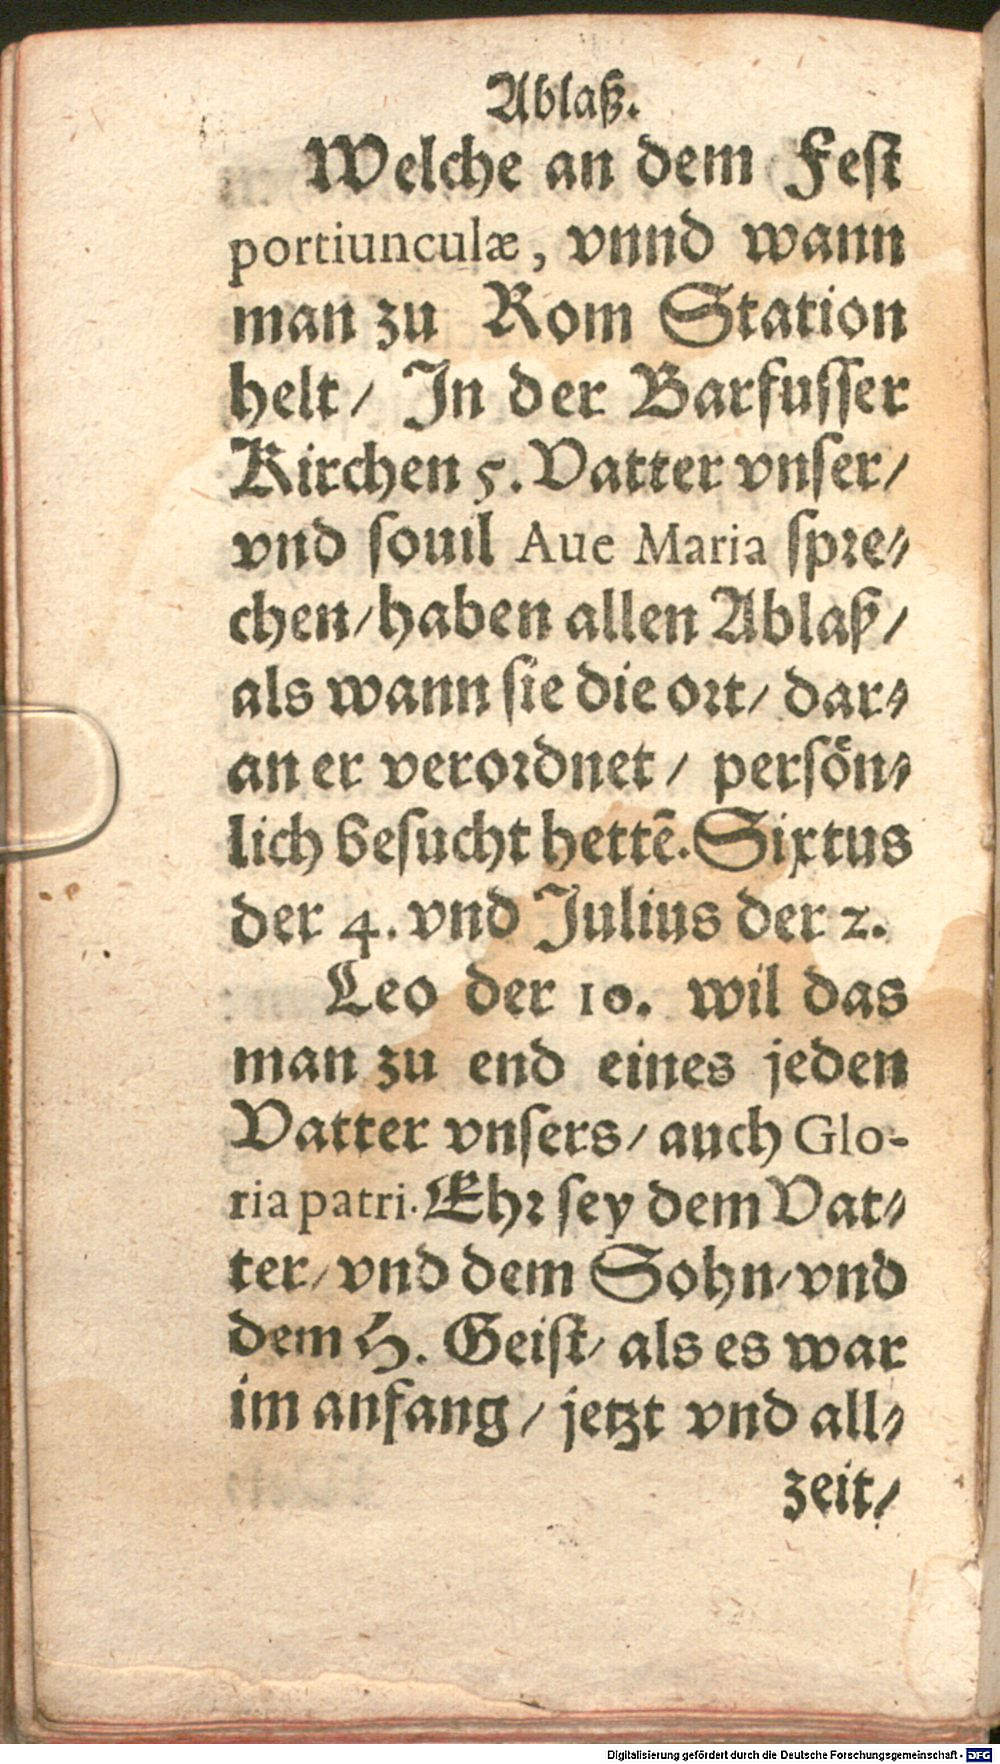 Ablaß.
Welche an dem Fest
portiunculæ, vnnd wann
man zu Rom Station
helt/ In der Barfusser
Kirchen 5. Vatter vnser/
vnd souil Aue Maria spre⸗
chen/haben allen Ablaß/
als wann sie die ort/ dar⸗
an er verordnet/ persön⸗
lich besucht hettē. Sixtus
der 4. vnd Julius der 2.
Leo der 10. wil das
man zu end eines jeden
Vatter vnsers/ auch Glo-
ria patri. Ehr sey dem Vat⸗
ter/ vnd dem Sohn/ vnd
dem H. Geist/ als es war
im anfang/ jetzt vnd all⸗
zeit/
Digitalisierung gefördert durch die Deutsche Forschungsgemeinschaft - DFG